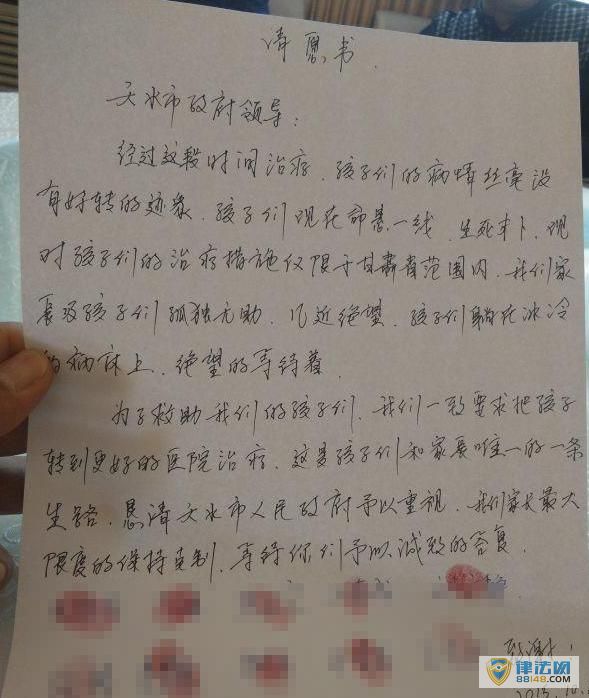 请愿书
天水市政府领导:
经过这段时间治疗、孩子们的病情丝毫没
有好转的迹象、孩子们现在命悬一线、生死未卜、现
对孩子们的治疗措施仅限于甘肃省范围内、我们家
长及孩子们孤独无助、几近绝望、孩子们躺在冰冷
的病床上、绝望的等待着
为了救助我们的孩子们、我们一致要求把孩子
转到更好的医院治疗、这是孩子们和家长唯一的一条
生路、恳请天水市人民政府予以重视、我们家长最大
限度的保持克制、等待你们予以诚恳的答复、
致谢!
律法网
88148.COM